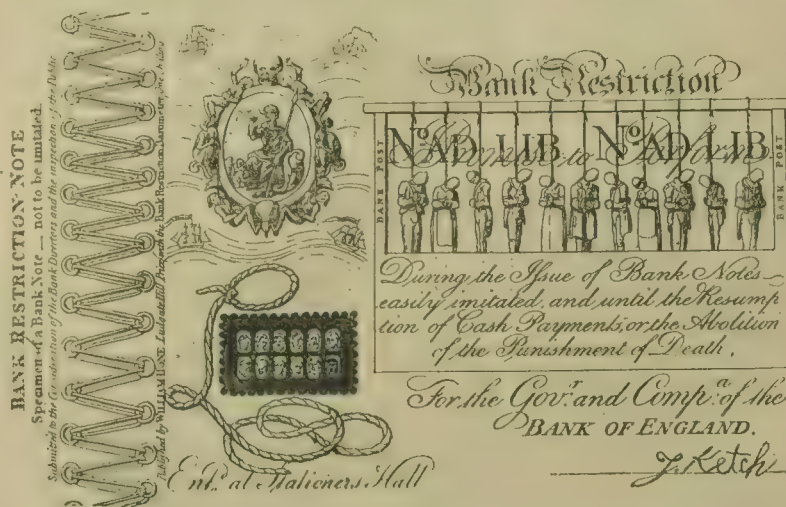 BANK RESTRICTION NOTE
Specimen of a Bank Note — not to be imitated.
Submitted to the Consideration of the Bank Directors and the inspection of the Public
Published by WILLIAM HONE Ludgate Hill Price with the Bank Restriction Barometer, One Shilling
Bank Restriction
BANK POST
No. AD LIB No. AD LIB
I Promise to Perform
BANK POST
During the Issue of Bank Notes
easily imitated, and until the Resump
tion of Cash Payments, or the Abolition
of the Punishment of Death,
For the Govr. and Compa. of the
BANK OF ENGLAND.
J. Ketch
Entd. at Stationers Hall